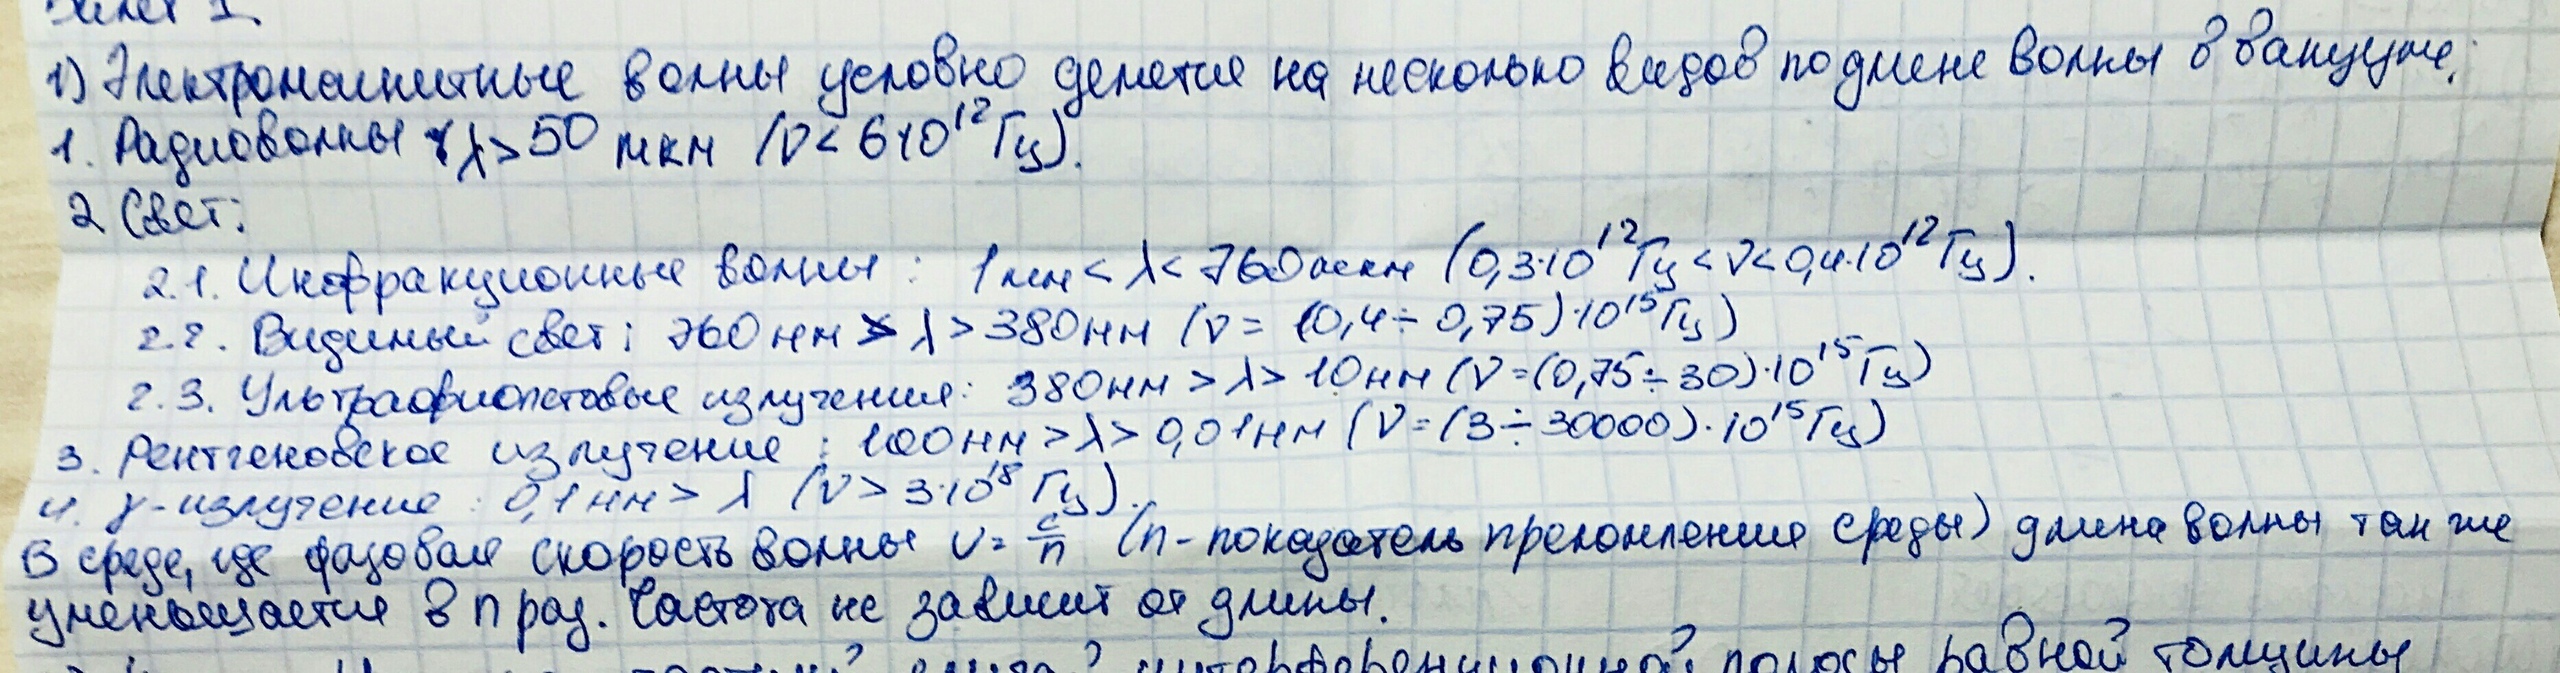 Билет 1.
1) Электромагнитные волны условно делятся на несколько видов по длине волны в вакууме:
1. Радиоволны λ>50 мкм (ν<6·10¹² Гц).
2 Свет:
2.1. Инфракционные волны: 1мм<λ<760мкм (0,3·10¹²Гц<ν<0,4·10¹²Гц).
2.2. Видимый свет: 760нм>λ>380нм (ν=(0,4÷0,75)·10¹⁵Гц)
2.3. Ультрафиолетовые излучения: 380нм>λ>10нм (ν=(0,75÷30)·10¹⁵Гц)
3. Рентгеновское излучение: 100нм>λ>0,01нм (ν=(3÷30000)·10¹⁵Гц)
4. γ-излучение: 0,1нм>λ (ν>3·10¹⁸Гц).
В среде, где фазовая скорость волны υ=c/n (n-показатель преломления среды) длина волны так же
уменьшается в n раз. Частота не зависит от длины.
интерференционной полосы равной толщины